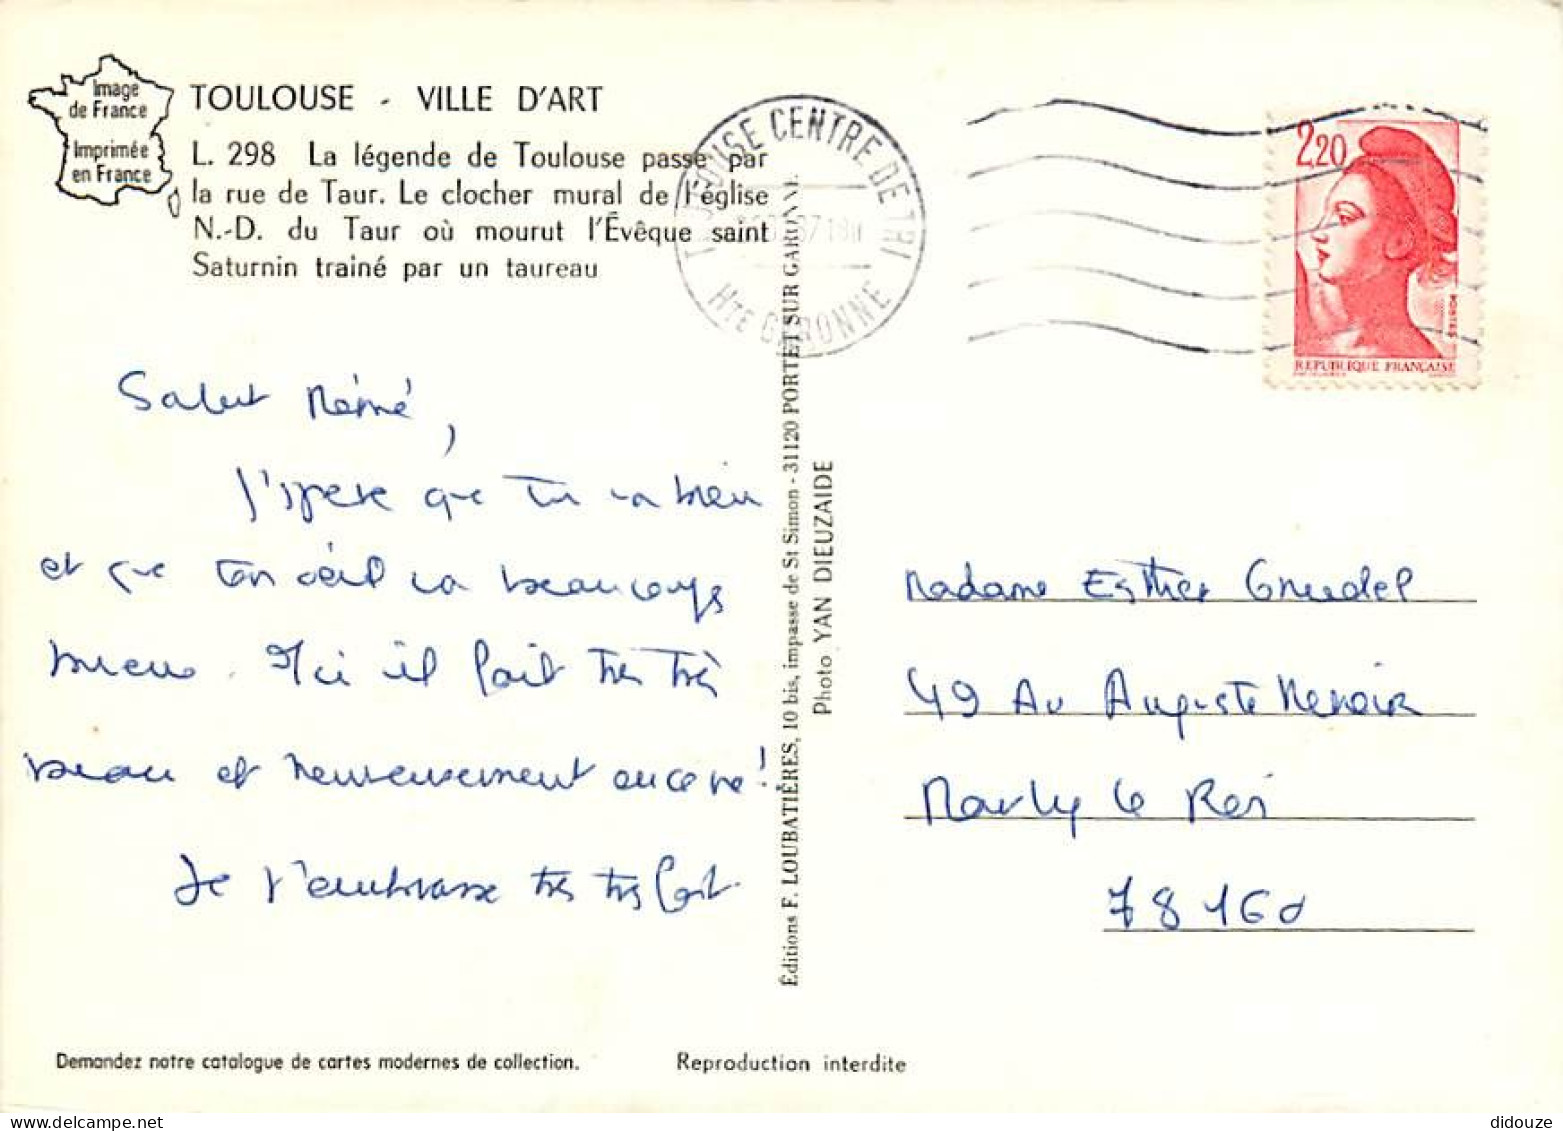 Image
de France
Imprimée
en France
TOULOUSE - VILLE D'ART
L. 298 La légende de Toulouse passe par
la rue de Taur. Le clocher mural de l'église
N.-D. du Taur où mourut l'Évêque saint
Saturnin trainé par un taureau
TOULOUSE CENTRE DE TRI
87 18H
HTE GARONNE
2,20
POSTES
REPUBLIQUE FRANÇAISE
Salut Mémé,
J'espere que tu va bien
et que ton oeil va beaucoups
mieux. Ici il fait très très
beau et heureusement encore !
Je t'embrasse très très fort.
Éditions F. LOUBATIÈRES, 10 bis, impasse de St Simon - 31120 PORTET SUR GARONNE
Photo YAN DIEUZAIDE
Madame Esther Grudel
49 Av Auguste Renoir
Marly le Roi
78160
Demandez notre catalogue de cartes modernes de collection.
Reproduction interdite
didouze